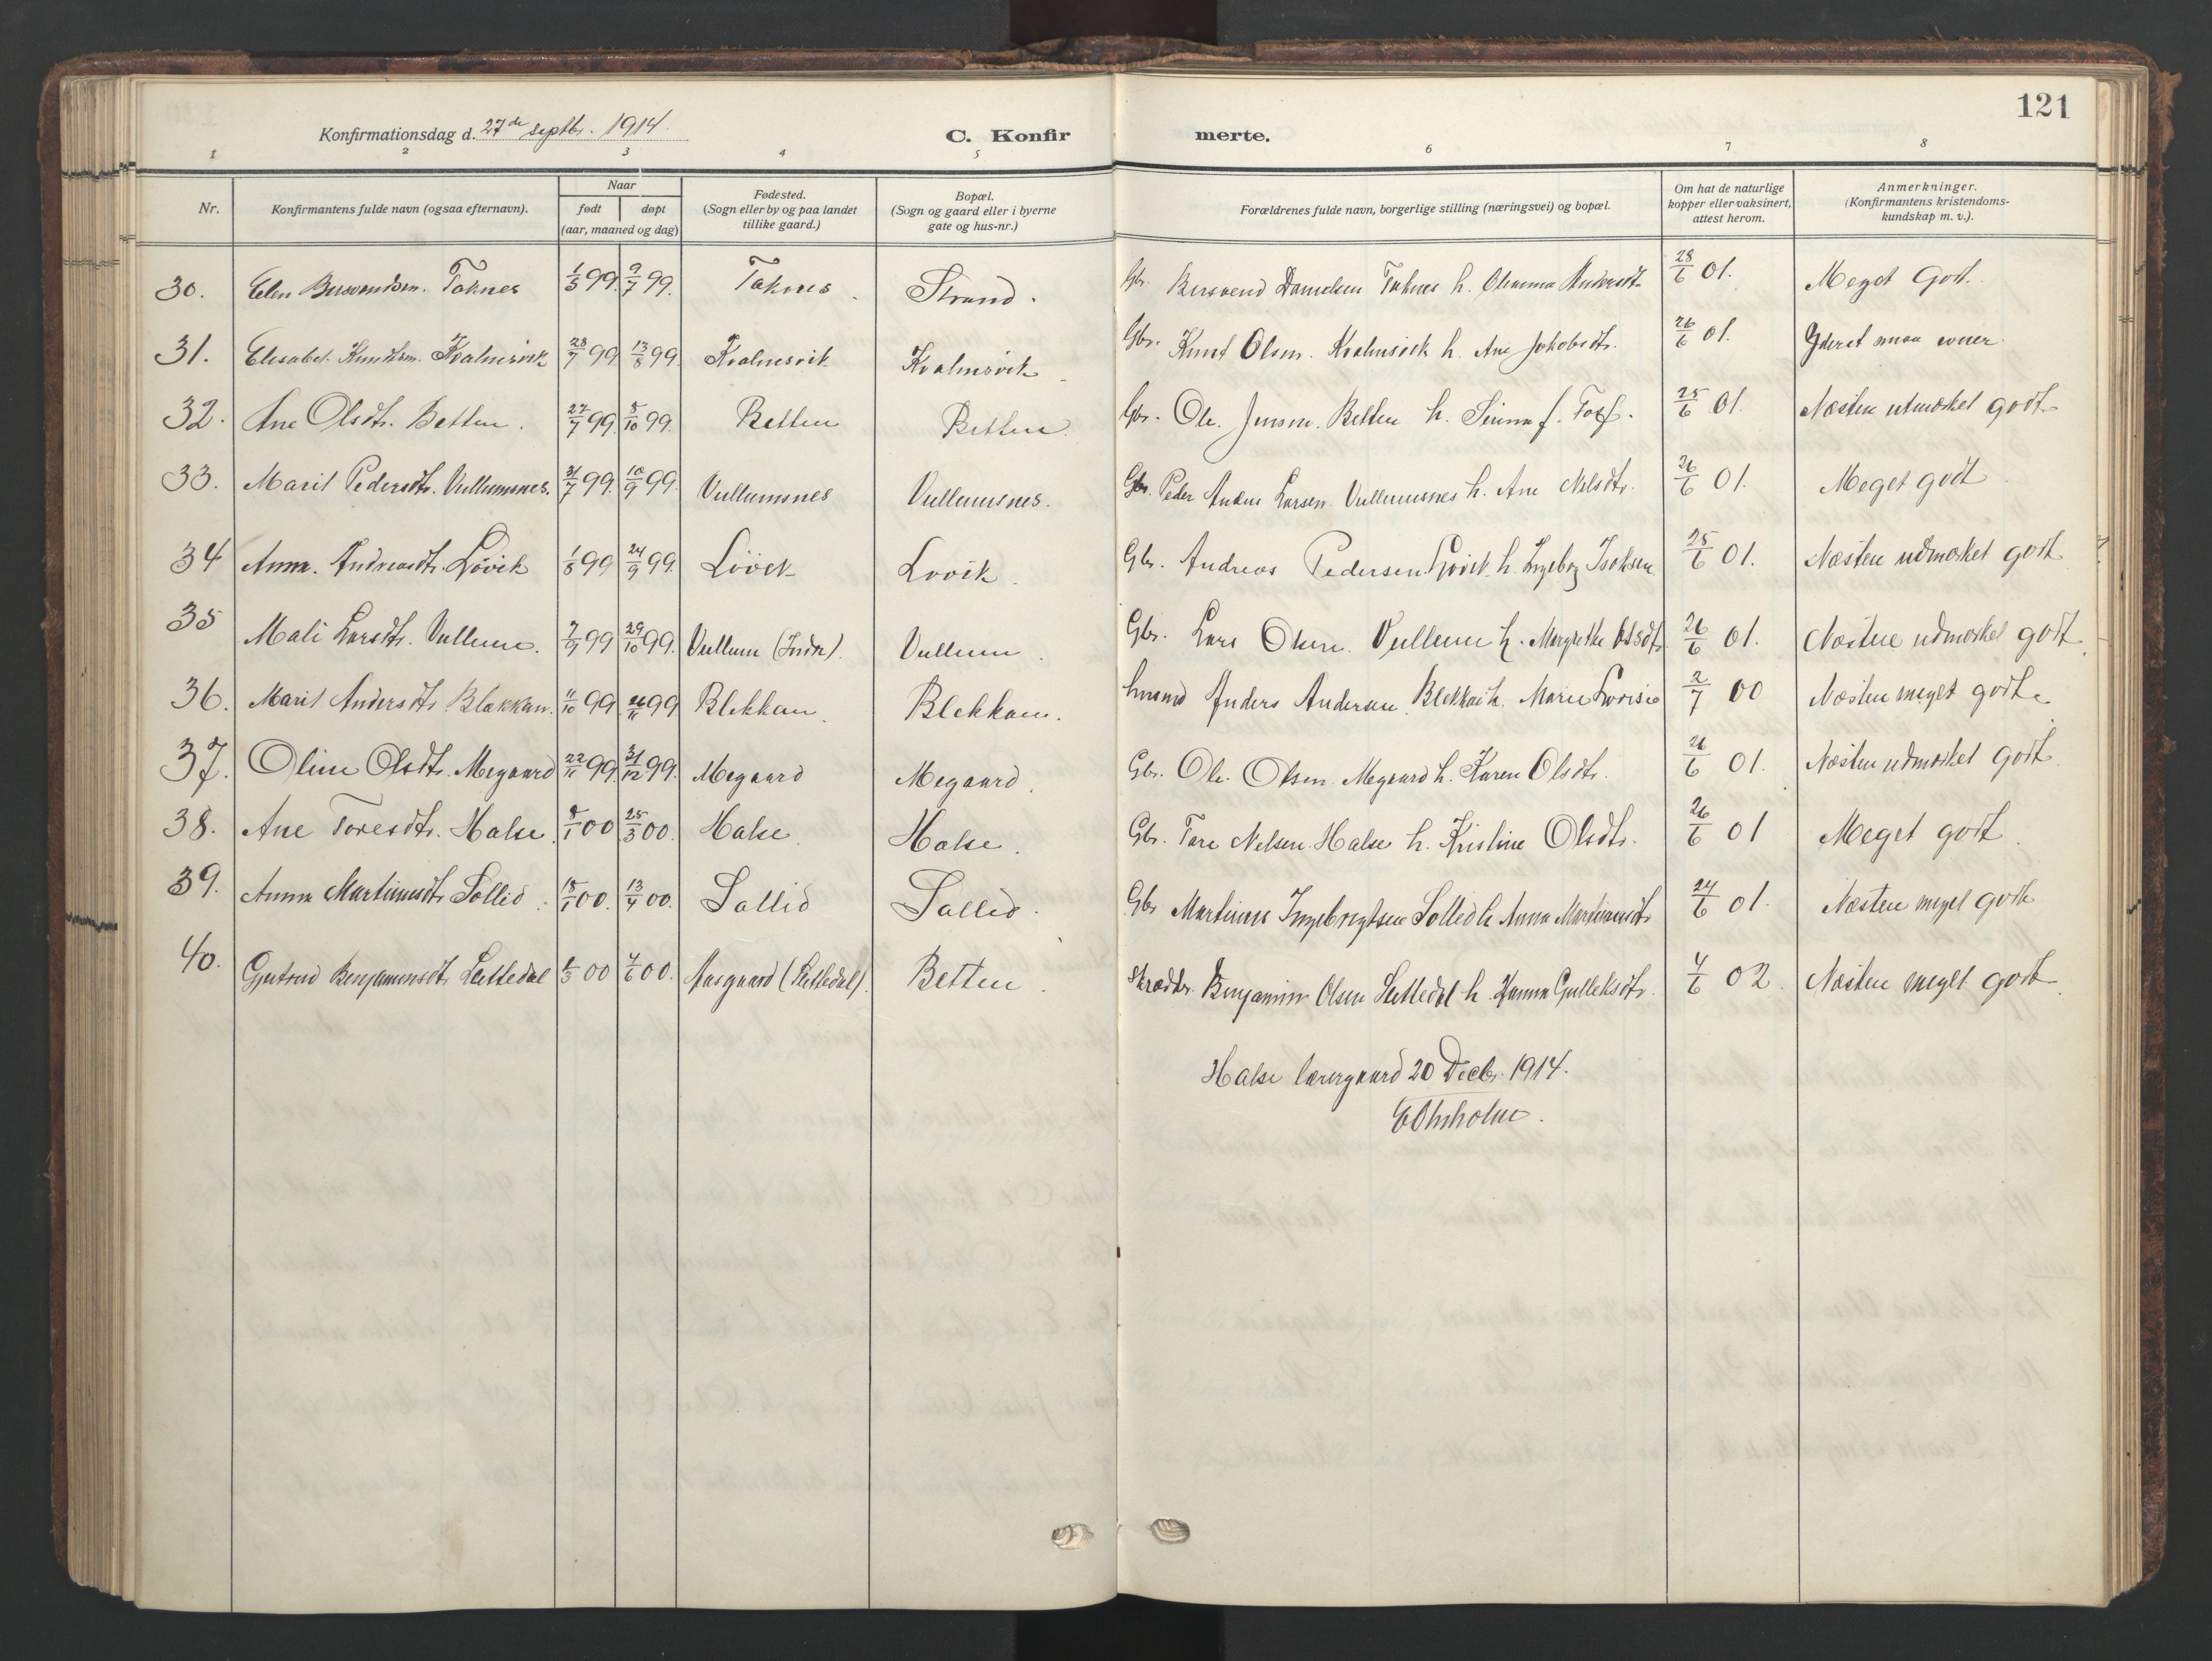 121
Konfirmationsdag d. 27de septbr. 1914.
C. Konfir merte.
1 2 3 4 5 6 7 8
Nr. | Konfirmantens fulde navn (ogsaa efternavn). | Naar født | døpt (aar, maaned og dag) | Fødested. (Sogn eller by og paa landet tillike gaard.) | Bopæl. (Sogn og gaard eller i byerne gate og hus-nr.) | Forældrenes fulde navn, borgerlige stilling (næringsvei) og bopæl. | Om hat de naturlige kopper eller vaksinert, attest herom. | Anmerkninger. (Konfirmantens kristendomskundskap m. v.).
30. Elen Bersvendsen. Taknes 1/5 99. 9/7 99. Taknes. Strand. Gbr. Bersvend Danielsen Taknes h. Olianna Andersdt. 28/6 01. Meget Godt.
31. Elisabet Knudtsen. Kvalnesvik 28/7 99 13/8 99. Kvalnesvik Kvalnesvik Gbr. Knut Olsen. Kvalnesvik h. Ane Jakobsdtr. 26/6 01. Yderst smaa evner.
32. Ane Olsdtr. Betten. 27/7 99. 8/10 99. Betten Betten. Gbr. Ole Jensen. Betten h. Sirianna f. 25/6 01. Næsten utmærket godt
33. Marit Pedersdtr. Vullumsnes. 31/7 99. 10/9 99. Vullumsnes Vullumsnes. Gbr. Peder Anders Larsen Vullumsnes h. Ane Nilsdtr. 26/6 01. Meget godt
34 Anna. Andreasdtr. Lövik 1/8 99 24/9 99. Lövik Lovik. Gbr. Andreas Pedersen Lövik h. Ingeborg Isaksen 25/6 01. Næsten udmærket godt
35 Mali Larsdtr. Vullum. 7/9 99 29/10 99. Vullum (Indr). Vullum. Gbr. Lars Olsen. Vullum h. Margrethe Olsdtr 26/6 01. Næsten udmærket godt.
36. Marit Andersdtr Blækkan. 11/10 99. 26/11 99 Blekkan. Blekkan. husmd Anders Andersen Blekkan h. Marie Lovise 2/7 00 Næsten meget godt
37. Oline Olsdtr. Megaard 22/11 99. 31/12 99. Megaard Megaard. Gbr. Ole Olsen Megaard h. Karen Olsdtr. 26/6 01. Næsten udmærket godt.
38. Ane Toresdtr. Halse. 8/1 00 25/3 00. Halse. Halse. Gbr. Tore Nelsen Halse h. Kristine Olsdtr. 26/6 01 Meget godt.
39. Anna Martinusdtr Sollid. 18/1 00. 13/4 00. Sollid Sollid. Gbr Martinus Ingebrigtsen Sollid h Anna Martinusdtr 24/6 01. Næsten meget godt
40. Gjertrud Benjaminsdtr Lettedal 2/3 00 4/6 00. Aasgaard (Slettedal). Betten. Skrædder Benjamin Olsen Slettedal h. Hanna Gulleksdtr. 4/6 02. Næsten meget godt.
Halse lærergaard 20 Decbr. 1914.
E Ohrholm.